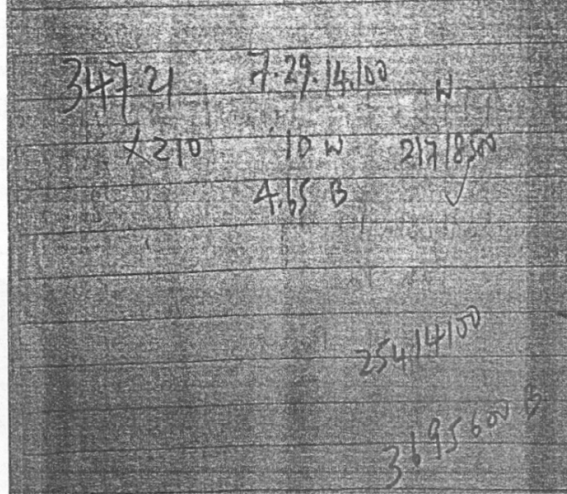 34721 7.29.14.100 W
X210 10 W 2171850
4.65 B
25414100
3695600 B